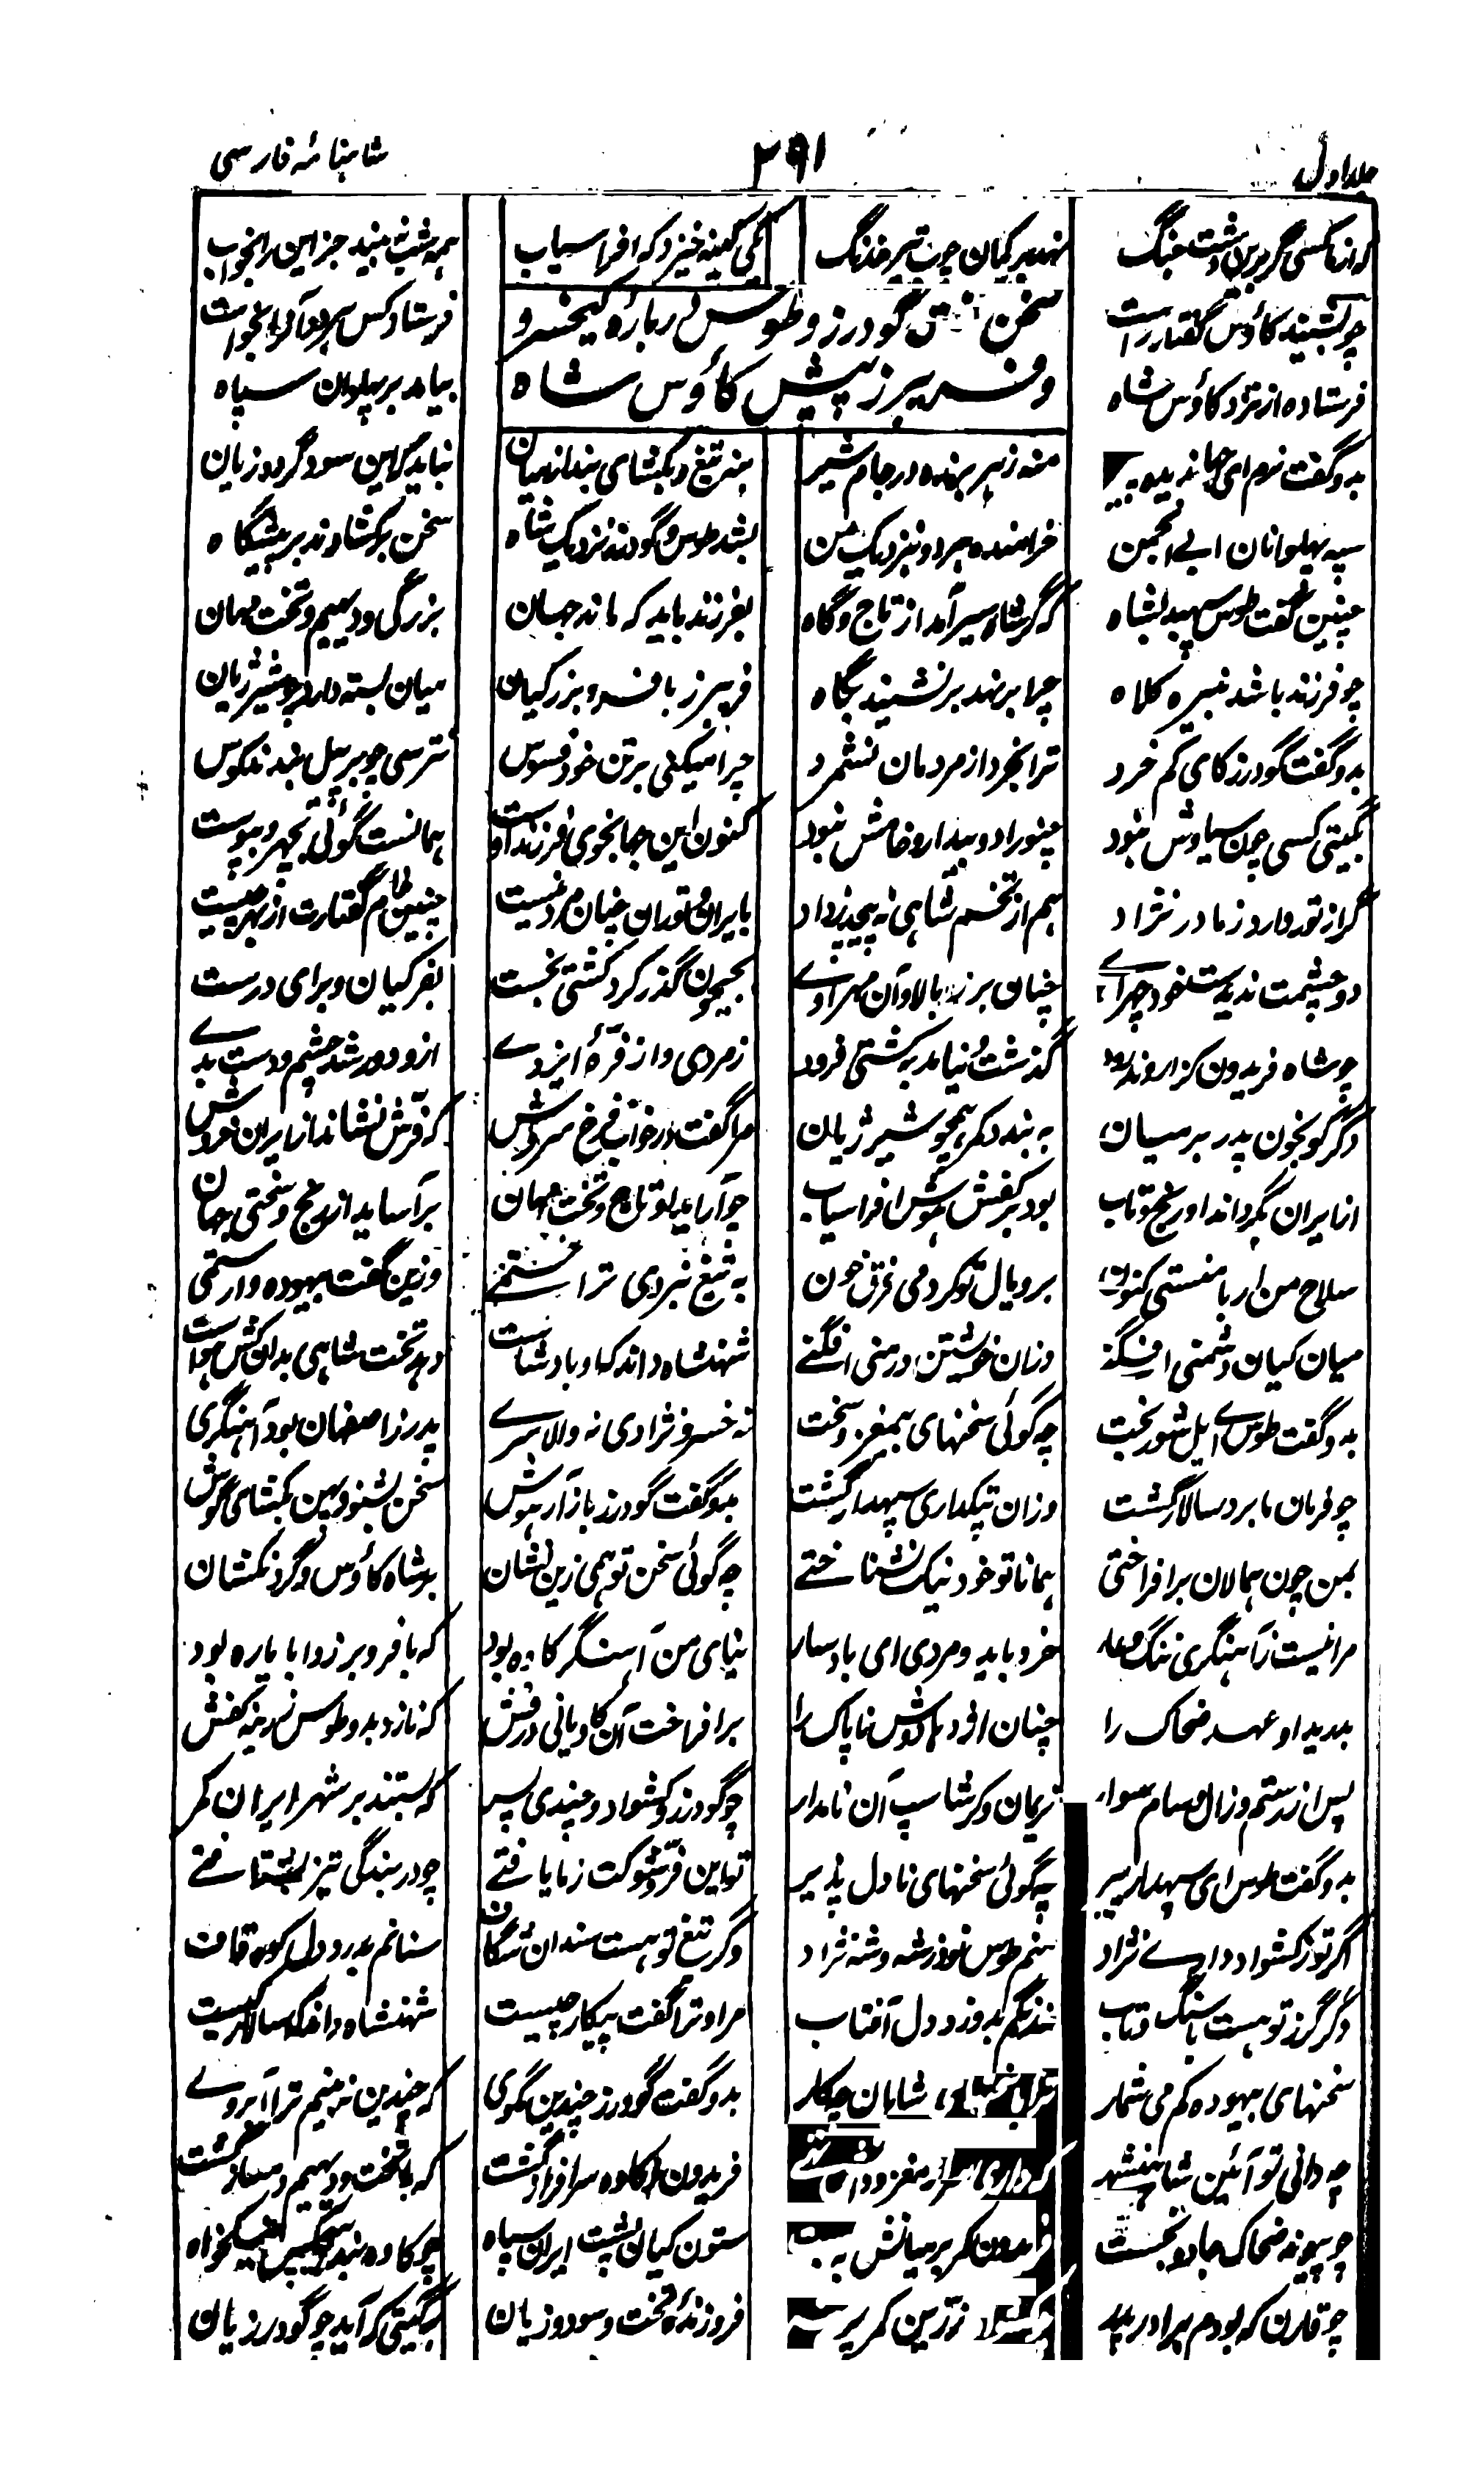 جلد اول ۲۹۱ شاهنامهٔ فارسی
که از ما کسی گر برین دشت جنگ نهد بر کمان چوب تیر خدنگ یکی کینه خیزد که افراسیاب همه شب نه بیند جز این را بخواب
سخن گودرز و طوس درباره کیخسرو
و فریبرز پیش کاؤس شاه
چو بشنید کاؤس گفتار راست فرستاد کس هر دو آنرا بخواست
فرستاده از نزد کاؤس شاه بیامد بر پهلوان سپاه
بدو گفت نرم ای جهاندیده منه زهر برنده در جام شیر بنه تیغ و بکشای بند از میان نباید کزین سود گردد زیان
سپه پهلوانان ابی انجمن خرامنده هر دو بنزدیک من بشد طوس و گودرز نزدیک شاه سخن برکشادند بر پیشگاه
چنین گفت طوس سپهبد بشاه که گر شاه سیر آمد از تاج و گاه بفرزند باید که ماند جهان بزرگی و دیهیم و تخت مهان
چو فرزند باشد نبیره کلاه چرا برنهد برنشیند بگاه فریبرز با فر و برز کیان میان بسته دارد چو شیر ژیان
بدو گفت گودرز کای کم خرد ترا بخرد از مردمان نشمرد چرا میکنی بر تن خود فسوس نترسی چو بر پیل بندند کوس
بگیتی کسی چون سیاوش نبود چنو راد و بیدار و خامش نبود کنون این جهانجوی فرزند اوست همانست گوئی بچهر و بپوست
گر از تور دارد ز مادر نژاد هم از تخم شاهی نه پیچد ز داد بایران و توران چنان مرد نیست چنین خام گفتارت از بهر چیست
دو چشمت ندیدست خود چهر اوے چنان برز بالا و آن مهر اوے بجیحون گذر کرد کشتی نجست بفر کیان و برای درست
چو شاه فریدون کز اروند رود گذشت و نیامد به کشتی فرود ز مردی و از فرهٔ ایزدے ازو دور شد چشم و دست بدے
دگر کو بخون پدر بر میان به بندد کمر همچو شیر ژیان مرا گفت در خواب فرخ سروش که فرش نشاند از ایران خروش
از ایران بگرداند او رنج و تاب بود بر کفش هوش افراسیاب چو آراید او تاج و تخت مهان برآساید از رنج و سختی جهان
سلاح من ار با منستی کنون بر و یال تو کردمی غرق خون به تیغ نبردی ترا خستمے وزین گفت بیهوده وارستمی
میان کیان دشمنی افگنے وزان خویشتن در منی افگنے شهنشاه داند که او پادشاست دهد تخت شاهی بدان کش هواست
بدو گفت طوس اے یل شوربخت چه گوئی سخنهای بیمغز و سخت نه خسرو نژادی نه والا سرے پدر ز اصفهان بود آهنگری
چو فرمان ما برد سالار گشت وزان پتکداری سپهدار گشت بدو گفت گودرز باز آر هوش سخن بشنو و پهن بکشای گوش
بمن چون همالان برافراختی همانا تو خود نیک نشناختے چه گوئی سخن تو همی زین نشان بر شاه کاؤس و گردنکشان
مرا نیست ز آهنگری ننگ و عار خرد باید و مردی ای بادسار نیای من آهنگر کاوه بود که با فر و برز و ابا یاره بود
بدرید او عهد ضحاک را چنان اژدهادوش ناپاک را برافراخت آن کاویانی درفش که نازد بدو طوس زرینه کفش
پس از رستم و زال و سام سوار نریمان و کرشاسپ آن نامدار چو گودرز و کشواد و چندی پسر که بستند بر شهر ایران کمر
بدو گفت طوس ای سپهدار پیر چه گوئی سخنهای نادل پذیر تو این فر و شوکت ز ما یافتے چو در بندگی تیز بشتافتے
اگر تو ز کشواد دارے نژاد منم طوس نوذر شه و شه نژاد وگر تیغ تو هست سندان شگاف سنانم بدرد دل کوه قاف
وگر گرز تو هست با سنگ و تاب خدنگم بدوزد دل آفتاب مرا و ترا گفت پیکار چیست شهنشاه داند که سالار کیست
سخنهای بیهوده کم می شمار شاهان چکار بدو گفت گودرز چندین مگوی که چندین نه بینم ترا آبروے
چه دانی تو آئین شاهنشهی که داری مغز فریدون ز کاوه سرافراز گشت که با تخت و دیهیم دمساز گشت
چو پیوند ضحاک جادو بجست فریدون کمر بر میانش ببست ستون کیان پشت ایران سپاه چو کاوه نبد نیکخواه
چو قارن که بودم برادر پدر زرین کمر فروزندهٔ تخت و سود و زیان بگیتی که آید چو گودرزیان